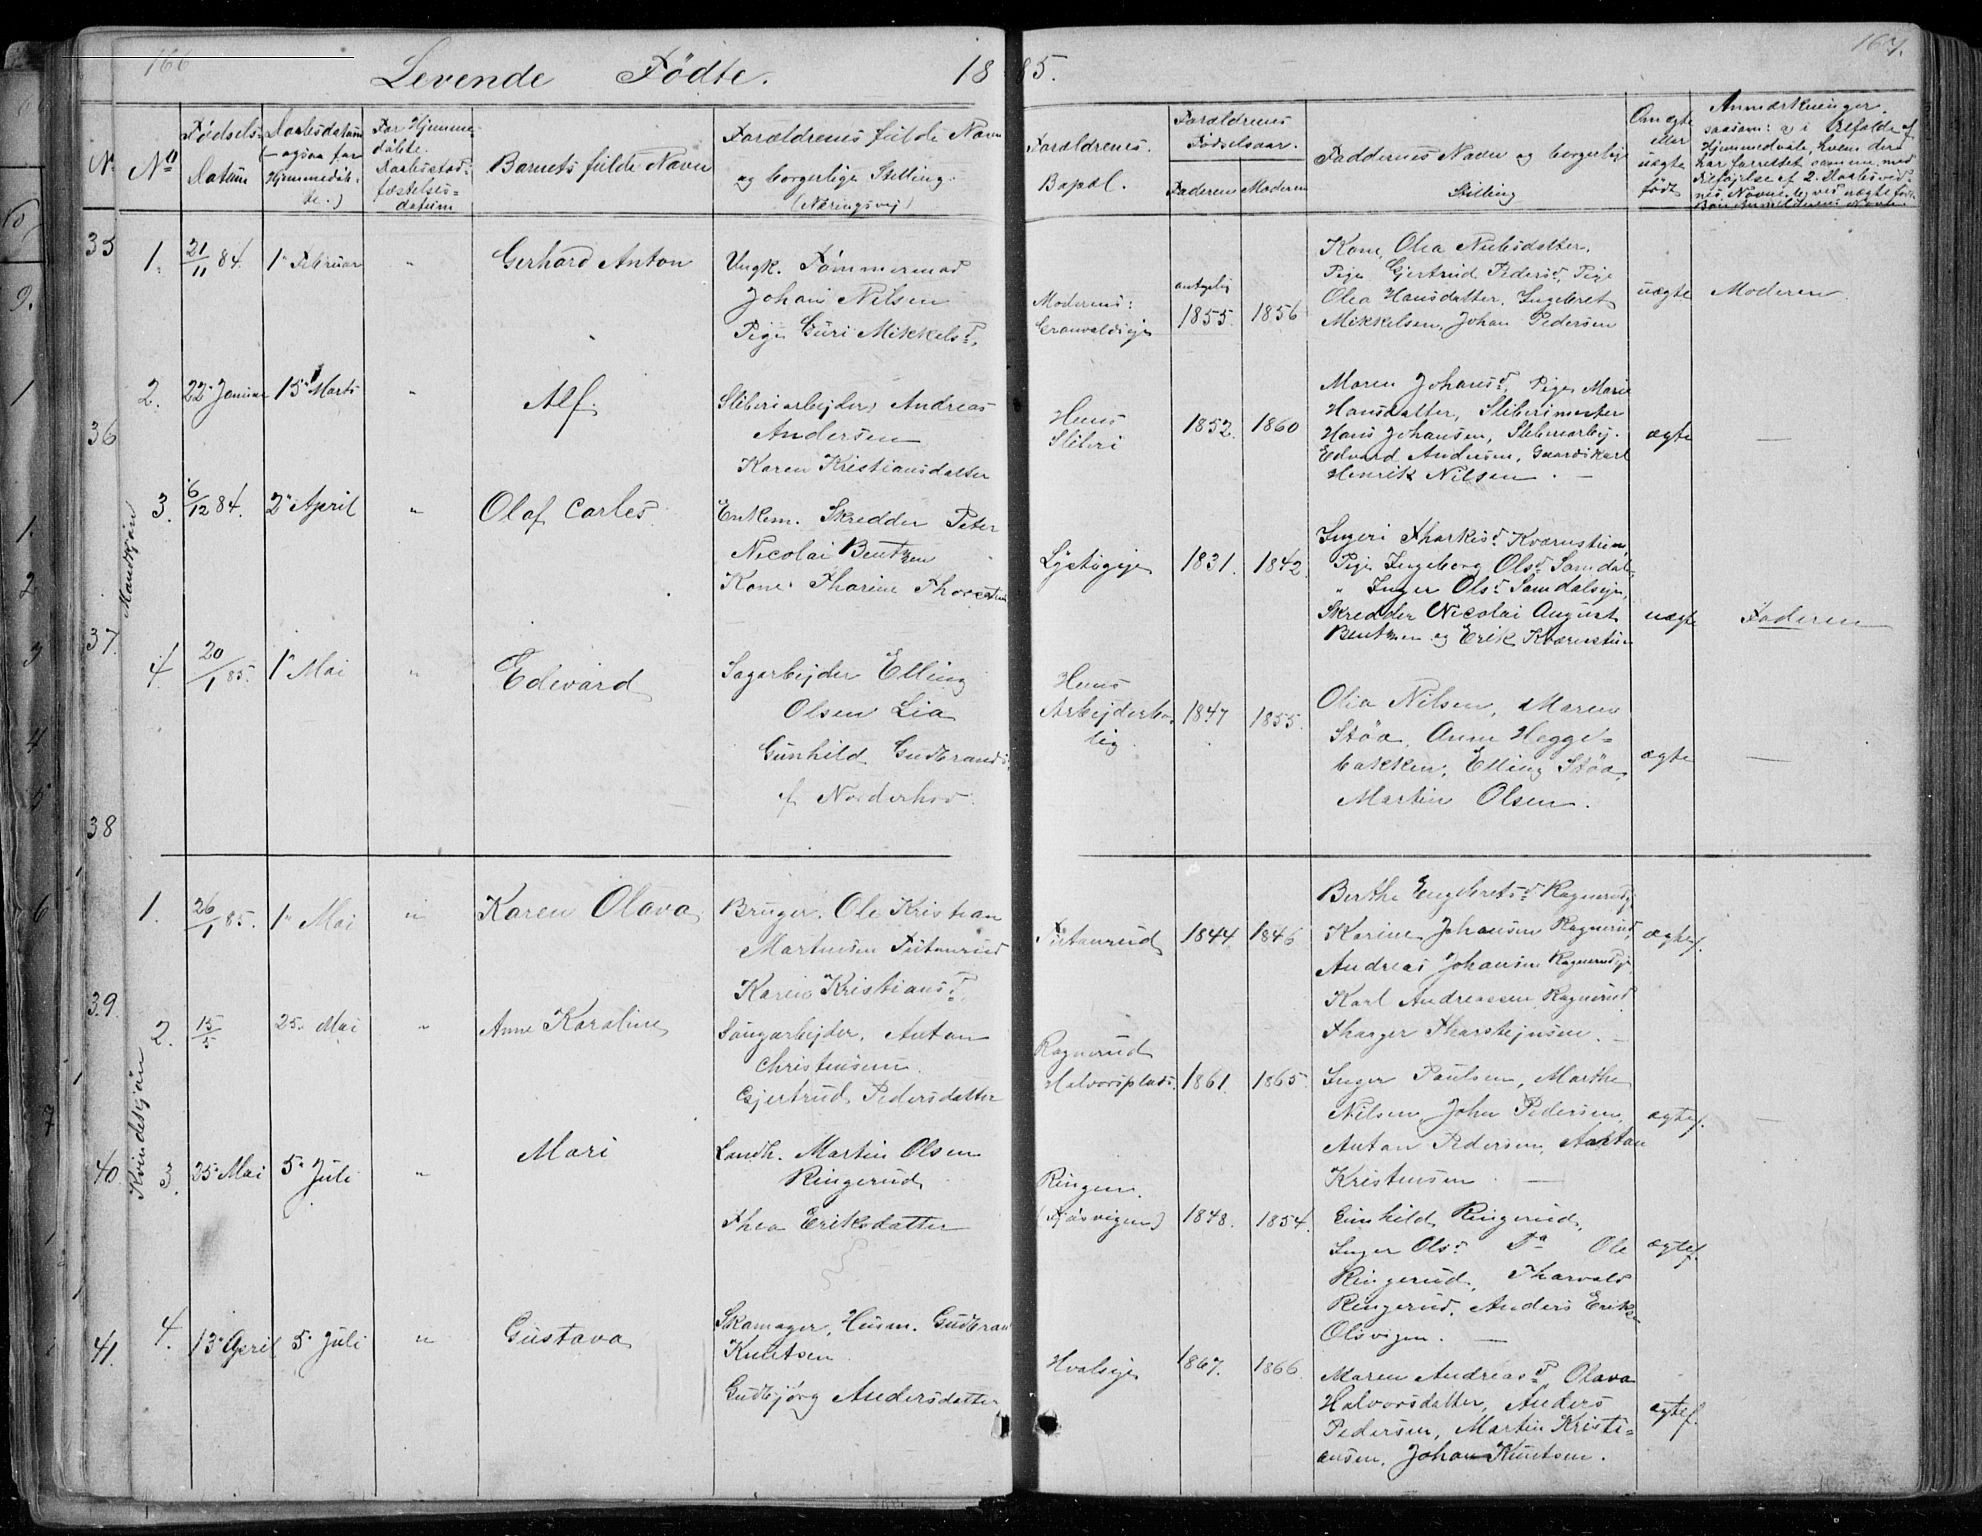 166
Levende Födte.
18 85.
167.
No
Födsels-
Datum
Daabsdatum
(ogsaa for
Hjemmedöb-
te.)
For Hjemme-
döbte.
Daabsstad-
fæstelses-
datum
Barnets fulde Navn
Forældrenes fulde Navn
og borgerlige Stilling.
(Næringsvej)
Forældrenes
Bopæl.
Forældrenes
Födselsaar.
Faderen Moderen
Faddernes Navn og borgerlige
Stilling
Om ægte
eller
uægte
födt
Anmærkninger
Mandkjön
35
1.
21/11 84.
1" Februar
"
Gerhard Anton
Ungk. Tömmermad
Johan Nilsen
Pige Guri Mikkelsd.
Moderens:
antagelig
1855.
1856
Kone, Olea Nielsdatter.
Pige Gjertrud Pedersd. Pige
Olea Hansdatter, Ingebret
Mikkelsen, Johan Pedersen
uægte
Moderen
2.
22" Januar
15" Marts
"
Alf.
Sliberiarbejder, Andreas
Andersen
Karen Kristiansdatter
Hens
Sliberi
1852.
1860
Maren Johansd. Pige Marie
Hansdatter, Sliberimester
Hans Johansen, Sliberiarbej.
Edvard Andersen, Gaardskarl
Henrik Nilsen.
ægte
—
36
3.
6/12 84.
2" April
"
Olaf Carles
Enkem. Skredder Peter
Nicolai Bentzen
Kone Tharine
1831.
1842
Ingeri
Pige Ingeborg Olsd.
" Inger Olsd.
Skredder Nicolai August
Bentzen og Erik
uægte
Faderen
37.
4.
20/1 85.
1" Mai
"
Edevard
Sagarbejder Elling
Olsen Lia
Gunhild Gudbrandsd.
f. Norderhov
Hens
Arbejderbo-
lig
1847
1855.
Olia Nilsen, Maren
Stöa, Anne Hegge-
bakken, Elling Stöa,
Martin Olsen.
ægte
—
38
Kvindekjön
1.
26/1 85.
1" Mai
"
Karen Olava
Bruger. Ole Kristian
Martinsen
Karen Kristiansd.
1844.
1846
Berthe Engebretsd.
Karine Johansen Ragnerud,
Andreas Johansen
Karl Andreassen Ragnerud
ægtef.
39.
2.
15/5
25" Mai
"
Anne Karoline
Saugarbejder. Anton
Christensen.
Gjertrud Pedersdatter
Ragnerud
Halvorsplads.
1861.
1865.
Inger Paulsen, Marthe
Nilsen, John Pedersen,
Anton Pedersen, Anton
Kristensen.
ægtef.
40
3.
25" Mai
5" Juli
"
Mari
Landh. Martin Olsen
Ringerud
Thea Eriksdatter
Ringen.
1848.
1854.
Gunhild Ringerud,
Inger Olsd. Do Ole
Ringerud, Tharvald
Ringerud, Anders
ægtef.
41.
4.
13" April
5" Juli
"
Gustava
Skomager, Husm. Gudbran
Knutsen
Gudbjörg Andersdatter
1867.
1866
Maren Andreasd. Olava
Halvorsdatter, Anders
Pedersen, Martin Kristi-
ansen, Johan Knutsen.
ægtef.